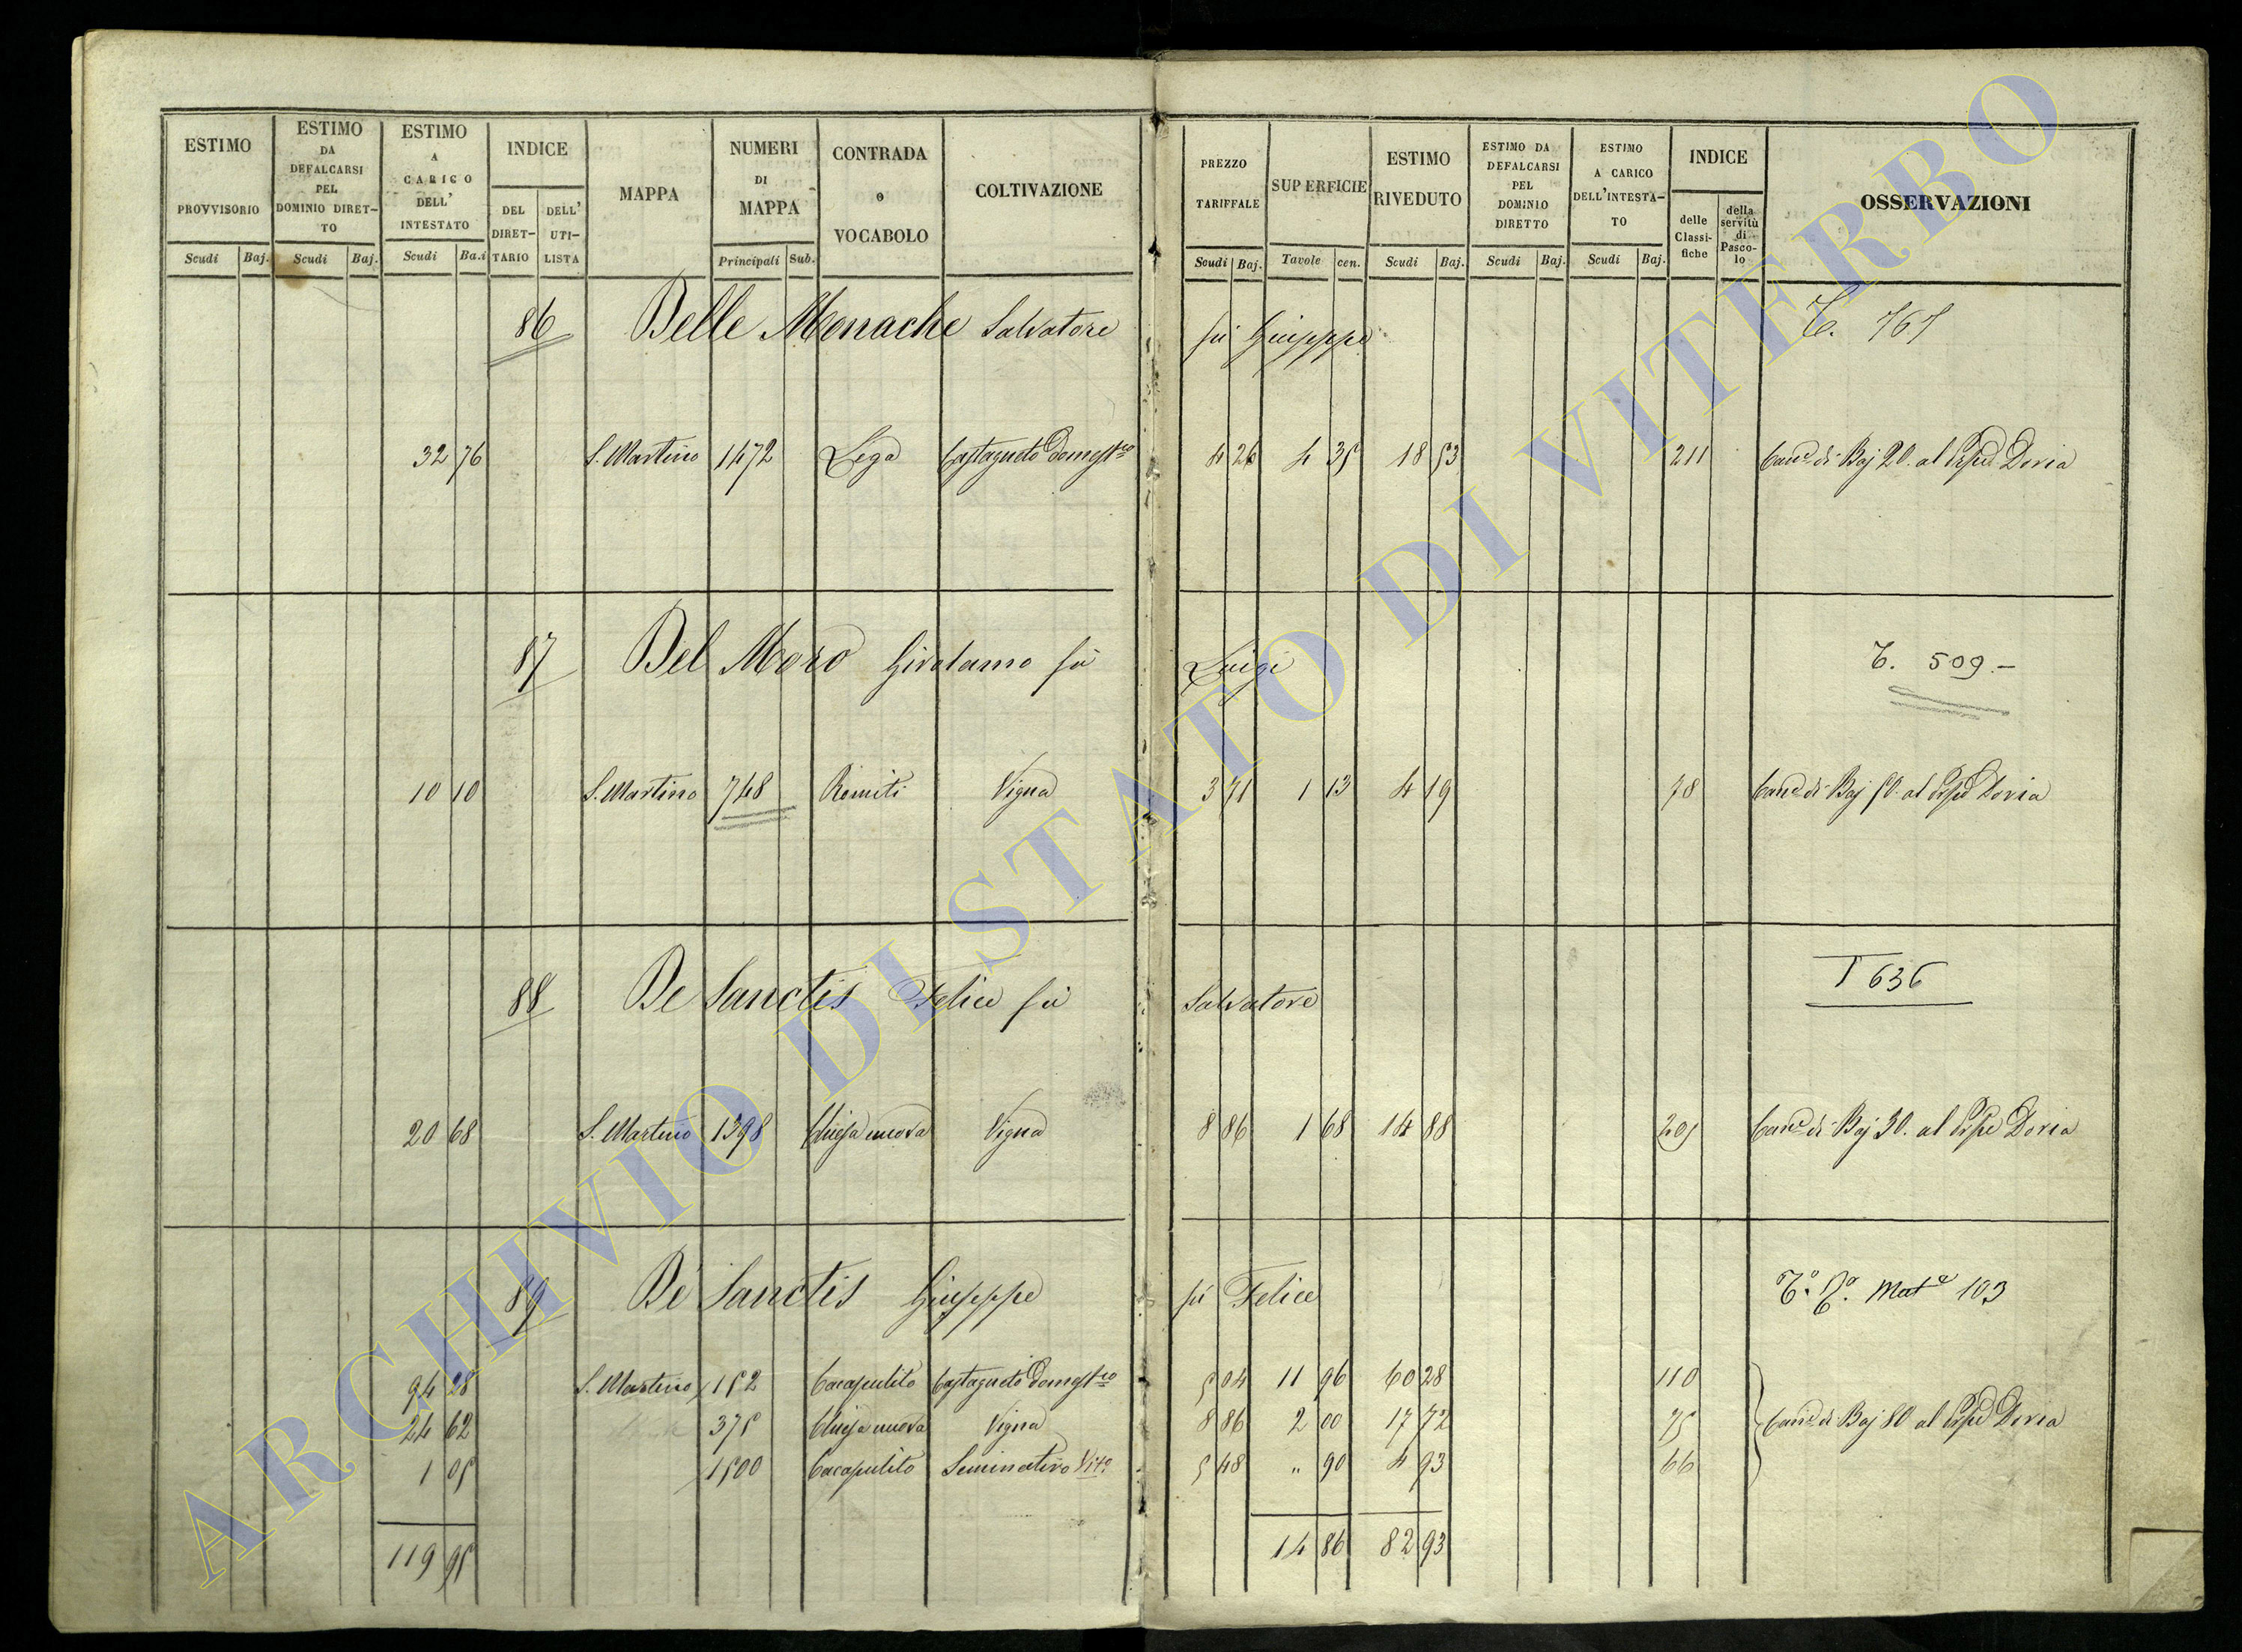 ESTIMO PROVVISORIO Scudi Baj.
ESTIMO DA DEFALCARSI PEL DOMINIO DIRET-TO Scudi Baj.
ESTIMO A CARICO DELL' INTESTATO Scudi Ba.i
INDICE DEL DIRET-TARIO DELL' UTI-LISTA
MAPPA
NUMERI DI MAPPA Principali Sub.
CONTRADA o VOCABOLO
COLTIVAZIONE
PREZZO TARIFFALE Scudi Baj.
SUPERFICIE Tavole cen.
ESTIMO RIVEDUTO Scudi Baj.
ESTIMO DA DEFALCARSI PEL DOMINIO DIRETTO Scudi Baj.
ESTIMO A CARICO DELL'INTESTA-TO Scudi Baj.
INDICE delle Classi-fiche della servitù di Pasco-lo
OSSERVAZIONI
86 Delle Monache Salvatore fù Giuseppe T. 767
32 76 S. Martino 1472 Lega Castagneto Domest.co 4 26 4 35 18 53 211 Can.e di Baj 20. al Doria
87 Del Moro Girolamo fù Luigi T. 509.-
10 10 S. Martino 748 Romiti Vigna 3 71 1 13 4 19 78 Can.e di Baj 50. al Doria
88 De Sanctis Felice fù Salvatore T 636
20 68 S. Martino 1398 Chiesa nuova Vigna 8 86 1 68 14 88 205 Can.e di Baj 30. al Doria
89 De Sanctis Giuseppe fù Felice Mat.e 103
94 28 S. Martino 152 Cacapulito Castagneto Domest.co 5 04 11 96 60 28 110
24 62 375 Chiesa nuova Vigna 8 86 2 00 17 72 75 Can.e di Baj 80 al Doria
1 05 1500 Cacapulito Seminativo Vit.o 5 48 " 90 4 93 66
119 95 14 86 82 93
ARCHIVIO DI STATO DI VITERBO